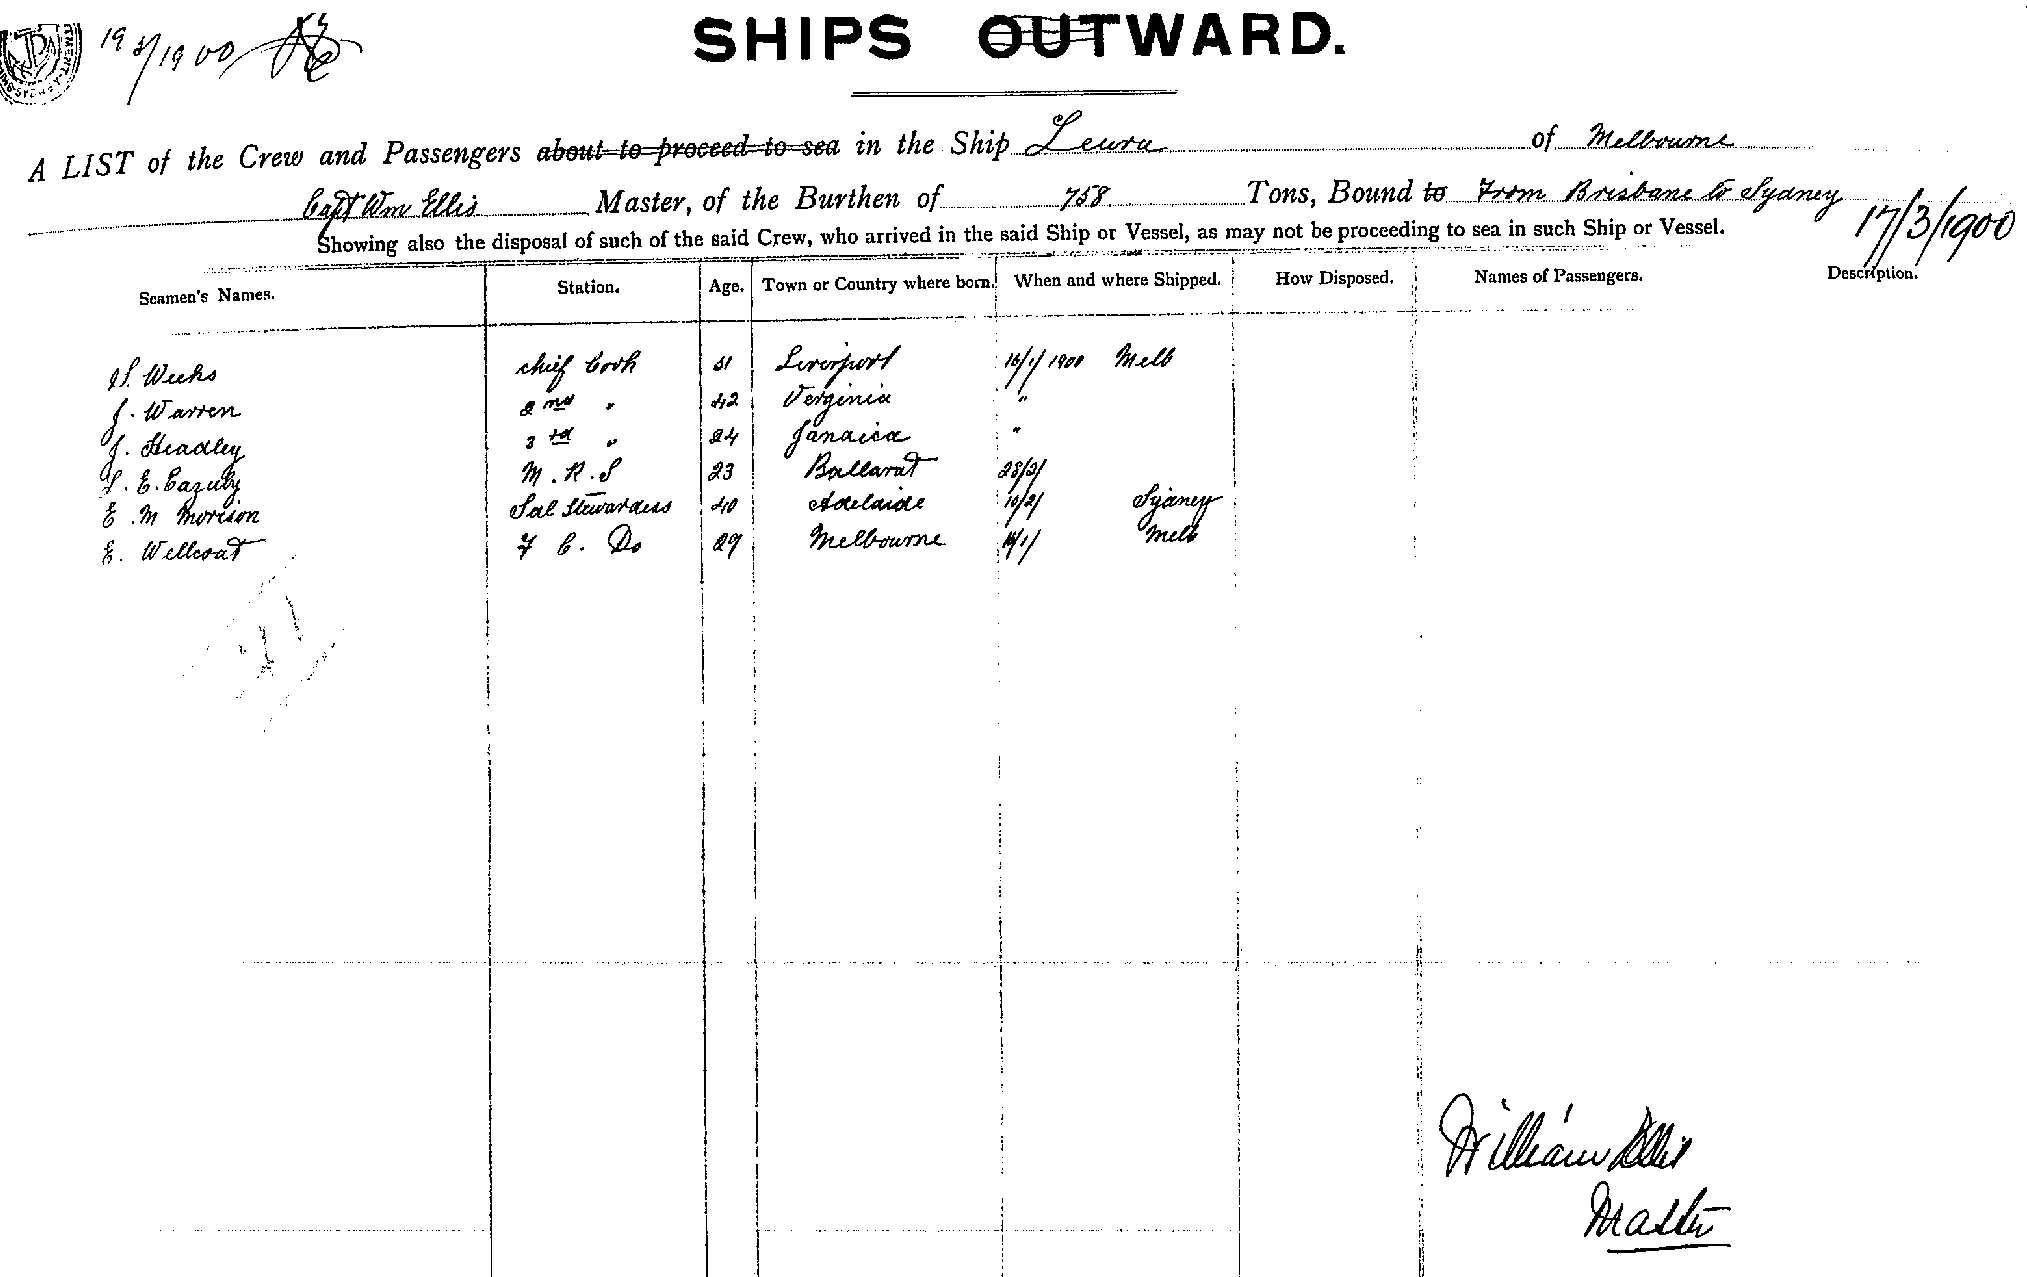 19/3/1900
SHIPS OUTWARD.
A LIST of the Crew and Passengers about to proceed to sea in the Ship Leura of Melbourne
Capt Wm Ellis Master, of the Burthen of 758 Tons, Bound to From Brisbane to Sydney
17/3/1900
Showing also the disposal of such of the said Crew, who arrived in the said Ship or Vessel, as may not be proceeding to sea in such Ship or Vessel.
Seamen's Names. Station. Age. Town or Country where born. When and where Shipped. How Disposed. Names of Passengers. Description.
S. Weeks chief Cook 51 Liverport 16/1/1900 Melb
J. Warren 2nd " 42 Verginia "
J. Headley 3rd " 24 Jamaica "
E. M. R. S 23 Ballarat 28/2/
E. M Morison Sal Stewardess 40 Adelaide 10/2/ Sydney
E. Wellcoat F C. Do 29 Melbourne Melb
William Ellis
Master